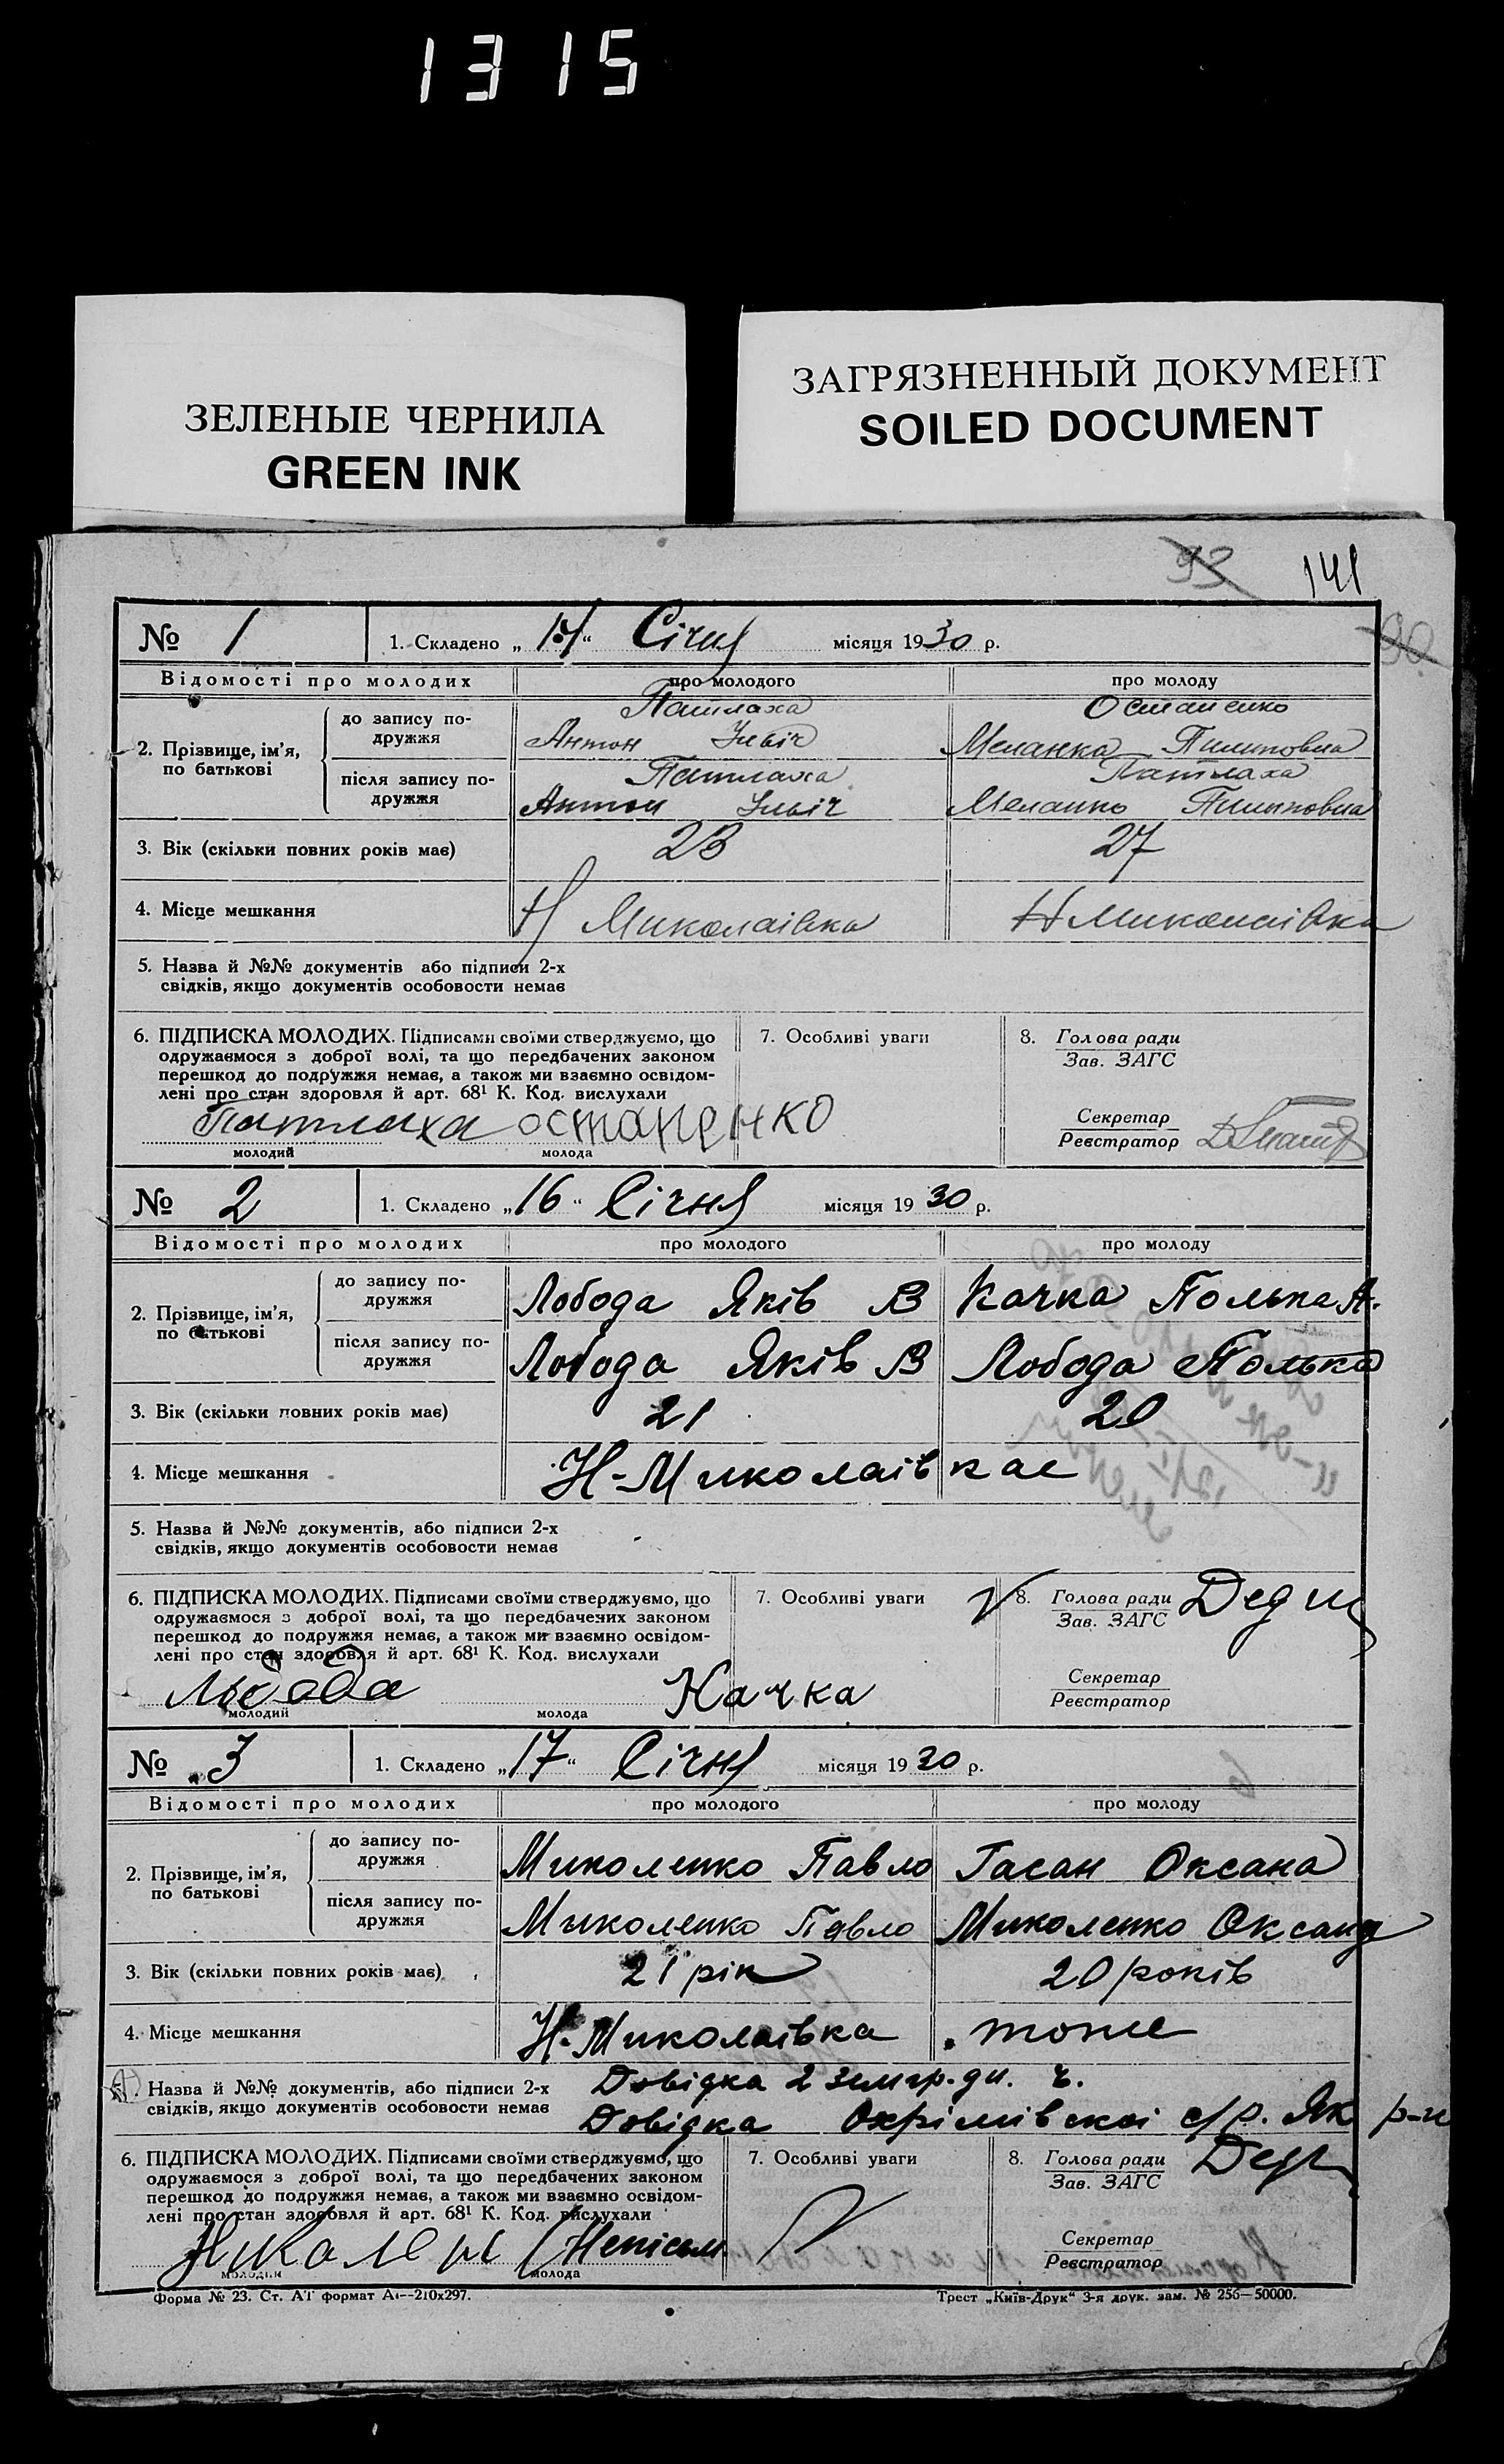 1315
ЗЕЛЕНЫЕ ЧЕРНИЛА
GREEN INK
ЗАГРЯЗНЕННЫЙ ДОКУМЕНТ
SOILED DOCUMENT
93 141
90
№ 1 1. Складено „ “ Січня місяця 1930 р.
Відомості про молодих про молодого про молоду
2. Прізвище, ім'я, по батькові
до запису по-
дружжя
Патлаха Остапенко
Антон Ільіч Меланка Пилиповна
після запису по-
дружжя
Патлаха Патлаха
Антон Ільіч Меланко Пилиповна
3. Вік (скільки повних років має) 23 27
4. Місце мешкання Н Миколаівка Н Миколаівка
5. Назва й №№ документів або підписи 2-х
свідків, якщо документів особовости немає
6. ПІДПИСКА МОЛОДИХ. Підписами своїми стверджуємо, що
одружаємося з доброї волі, та що передбачених законом
перешкод до подружжя немає, а також ми взаємно освідом-
лені про стан здоровля й арт. 68¹ К. Код. вислухали
Патлаха остапенко
молодий молода
7. Особливі уваги
8. Голова ради
Зав. ЗАГС
Секретар
Реєстратор
№ 2 1. Складено „16“ Січня місяця 1930 р.
Відомості про молодих про молодого про молоду
2. Прізвище, ім'я, по батькові
до запису по-
дружжя
Лобода Яків В Качка Полька А.
після запису по-
дружжя
Лобода Яків В Лобода Полька
3. Вік (скільки повних років має) 21 20
4. Місце мешкання Н-Миколаівкае
5. Назва й №№ документів, або підписи 2-х
свідків, якщо документів особовости немає
6. ПІДПИСКА МОЛОДИХ. Підписами своїми стверджуємо, що
одружаємося з доброї волі, та що передбачених законом
перешкод до подружжя немає, а також ми взаємно освідом-
лені про стан здоровля й арт. 68¹ К. Код. вислухали
Лобода Качка
молодий молода
7. Особливі уваги
8. Голова ради
Зав. ЗАГС
Секретар
Реєстратор
№ 3 1. Складено „17“ Січня місяця 1930 р.
Відомості про молодих про молодого про молоду
2. Прізвище, ім'я, по батькові
до запису по-
дружжя
Миколенко Павло Гасан Оксана
після запису по-
дружжя
Миколенко Павло Миколенко Оксана
3. Вік (скільки повних років має) 21 рік 20 років
4. Місце мешкання Н-Миколаівка тоже
5. Назва й №№ документів, або підписи 2-х
свідків, якщо документів особовости немає
Довідка 2 земгр. ч.
Довідка Охрімівскоі с/р. Як р-н
6. ПІДПИСКА МОЛОДИХ. Підписами своїми стверджуємо, що
одружаємося з доброї волі, та що передбачених законом
перешкод до подружжя немає, а також ми взаємно освідом-
лені про стан здоровля й арт. 68¹ К. Код. вислухали
Непісьм.
молодий молода
7. Особливі уваги
8. Голова ради
Зав. ЗАГС
Секретар
Реєстратор
Форма № 23. Ст. АТ формат А4--210х297.
Трест „Київ-Друк“ 3-я друк. зам. № 256—50000.